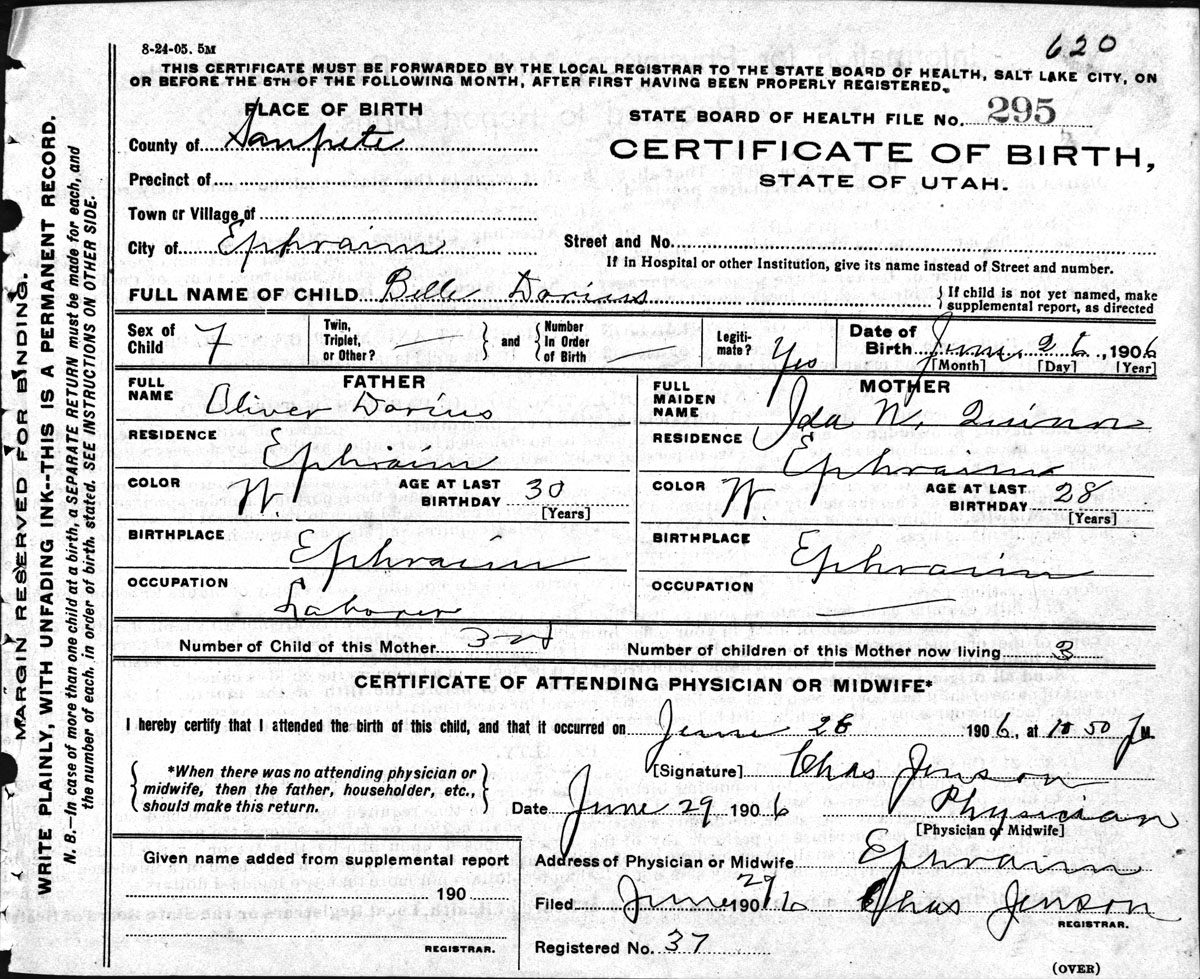 8-24-05. 5M
620
THIS CERTIFICATE MUST BE FORWARDED BY THE LOCAL REGISTRAR TO THE STATE BOARD OF HEALTH, SALT LAKE CITY, ON
OR BEFORE THE 5TH OF THE FOLLOWING MONTH, AFTER FIRST HAVING BEEN PROPERLY REGISTERED.
PLACE OF BIRTH
STATE BOARD OF HEALTH FILE No. 295
County of Sanpete
CERTIFICATE OF BIRTH,
Precinct of
STATE OF UTAH.
Town or Village of
City of Ephraim
Street and No.
If in Hospital or other Institution, give its name instead of Street and number.
FULL NAME OF CHILD Belle Dorius
{If child is not yet named, make
supplemental report, as directed
Sex of Child F
Twin, Triplet, or Other? } and { Number In Order of Birth
Legiti-mate? Yes
Date of Birth June 26, 1906
[Month] [Day] [Year]
FATHER
FULL NAME Oliver Dorius
RESIDENCE Ephraim
COLOR W. AGE AT LAST BIRTHDAY 30
[Years]
BIRTHPLACE Ephraim
OCCUPATION Laborer
MOTHER
FULL MAIDEN NAME Ida W. Quinn
RESIDENCE Ephraim
COLOR W. AGE AT LAST BIRTHDAY 28
[Years]
BIRTHPLACE Ephraim
OCCUPATION
Number of Child of this Mother 3rd
Number of children of this Mother now living 3
CERTIFICATE OF ATTENDING PHYSICIAN OR MIDWIFE*
I hereby certify that I attended the birth of this child, and that it occurred on June 26 1906, at 10 50 M.
{*When there was no attending physician or
midwife, then the father, householder, etc.,
should make this return.}
[Signature] Chas Jenson
Date June 29 1906 Physician
[Physician or Midwife]
Given name added from supplemental report
190
REGISTRAR.
Address of Physician or Midwife Ephraim
Filed June 29 1906 Chas Jenson
REGISTRAR.
Registered No. 37
(OVER)
MARGIN RESERVED FOR BINDING.
WRITE PLAINLY, WITH UNFADING INK--THIS IS A PERMANENT RECORD.
N. B.—In case of more than one child at a birth, a SEPARATE RETURN must be made for each, and
the number of each, in order of birth, stated. SEE INSTRUCTIONS ON OTHER SIDE.